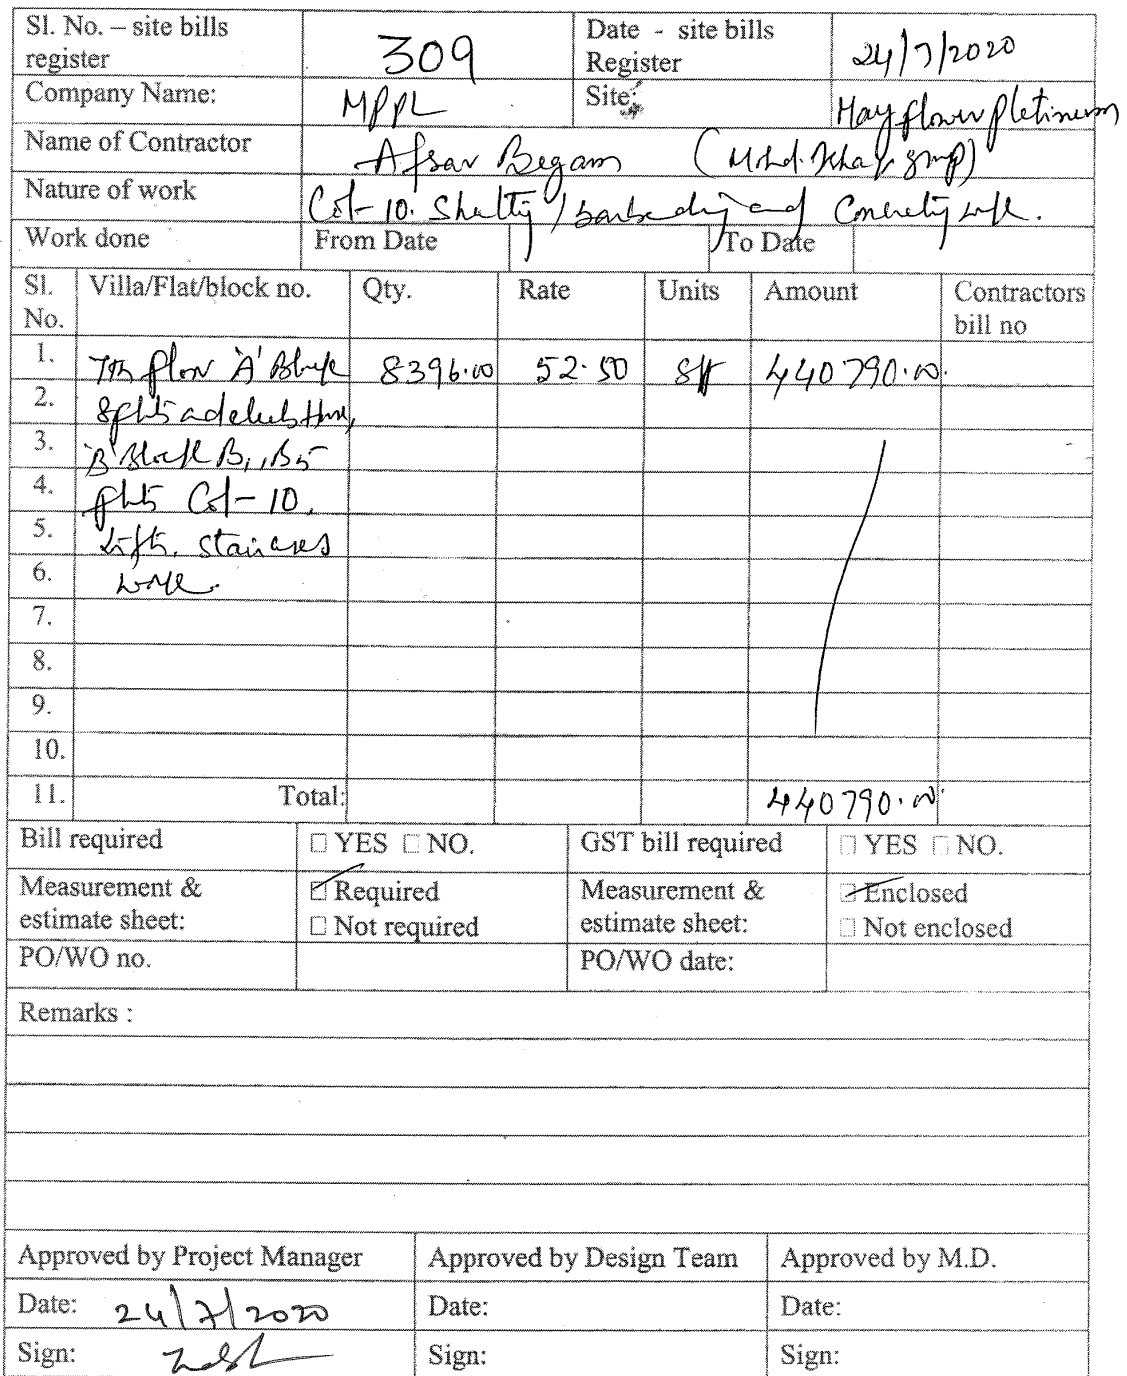 Sl. No. – site bills register 309 Date - site bills Register 24/7/2020
Company Name: MPPL Site: Mayflower Pletinum
Name of Contractor Afsar Begam (Mohd. group)
Nature of work Col-10. Shutting / barbending and Concreting work.
Work done From Date To Date
Sl. No. Villa/Flat/block no. Qty. Rate Units Amount Contractors bill no
1. 7th floor 'A' Block 8396.00 52.50 Sft 440790.00
2. 8 flats
3. 'B' Block B1, B5
4. flats Col-10,
5. Lifts, staircases
6. work.
7.
8.
9.
10.
11. Total: 440790.00
Bill required □ YES □ NO. GST bill required □ YES □ NO.
Measurement & estimate sheet: ☑ Required □ Not required Measurement & estimate sheet: ☑ Enclosed □ Not enclosed
PO/WO no. PO/WO date:
Remarks :
Approved by Project Manager Approved by Design Team Approved by M.D.
Date: 24/7/2020 Date: Date:
Sign: Sign: Sign: